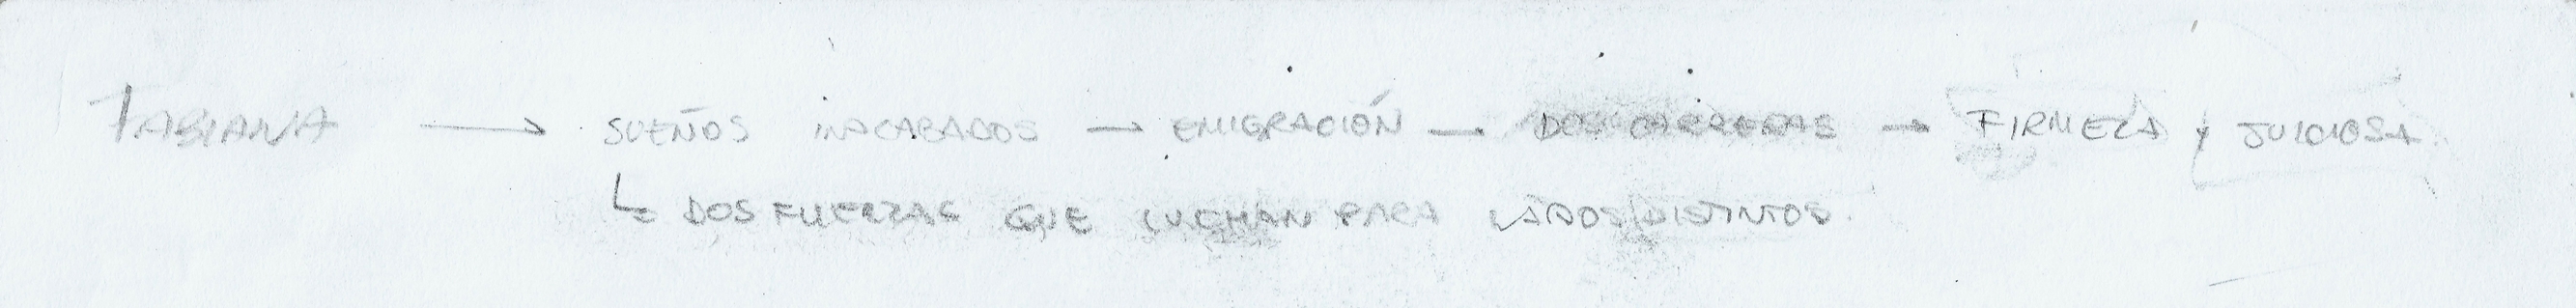 FABIANA → SUEÑOS INACABADOS → EMIGRACIÓN → DOS CARRERAS → FIRMEZA Y JUICIOSA.
↳ DOS FUERZAS QUE LUCHAN PARA LADOS DISTINTOS.